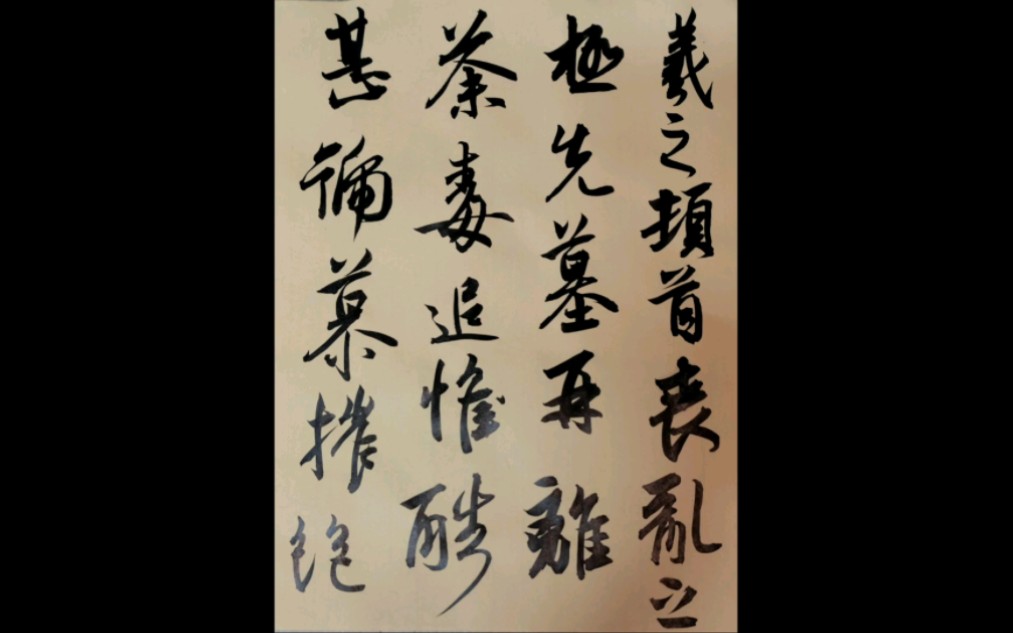 羲之頓首喪亂之
極先墓再離
荼毒追惟酷
甚號慕摧絕